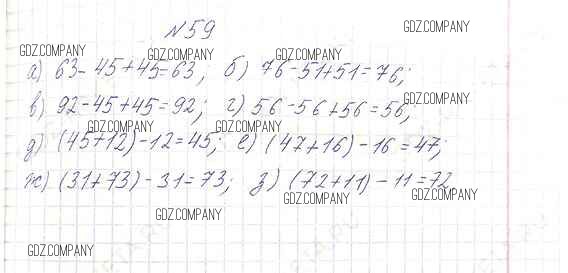 №59
GDZ.COMPANY
GDZ.COMPANY GDZ.COMPANY GDZ.COMPANY
а) 63-45+45=63; б) 76-51+51=76;
GDZ.COMPANY
в) 92-45+45=92; г) 56-56+56=56;
GDZ.COMPANY GDZ.COMPANY
д) (45+12)-12=45; е) (47+16)-16=47;
ж) (31+73)-31=73; з) (72+11)-11=72.
GDZ.COMPANY GDZ.COMPANY
GDZ.COMPANY
GDZ.COMPANY